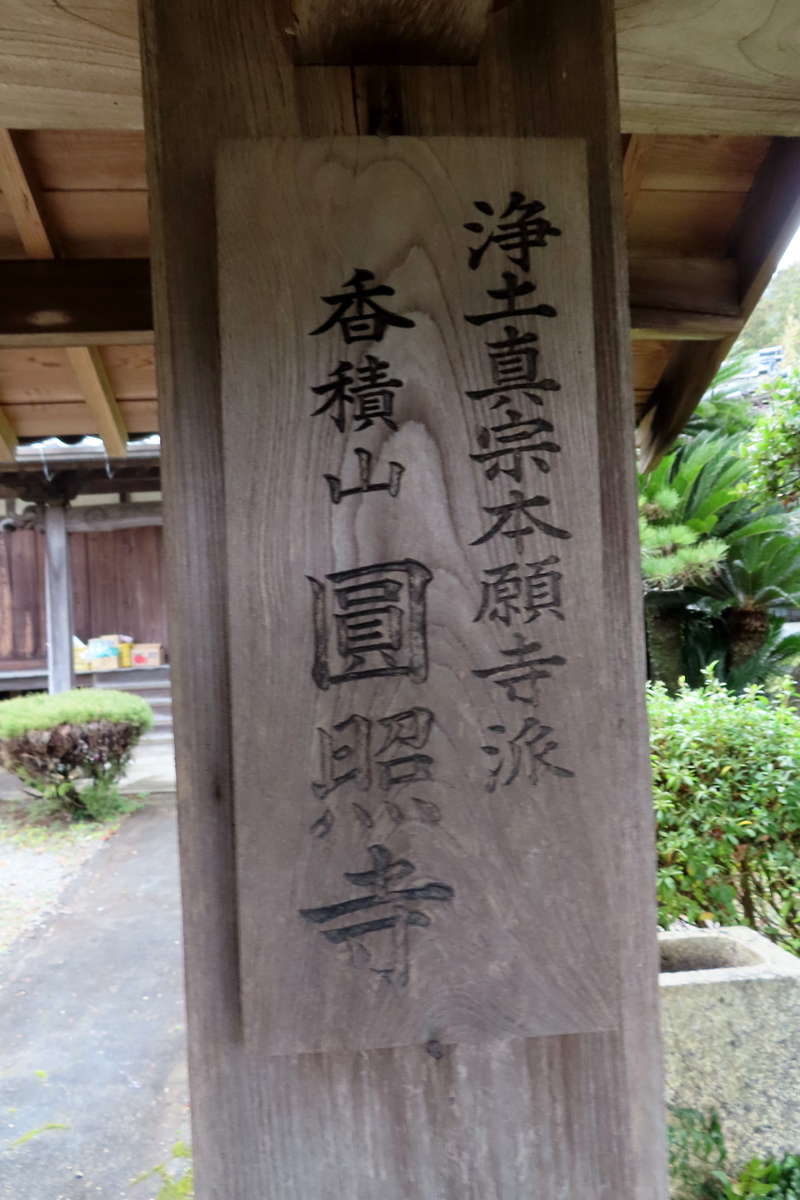 浄土真宗本願寺派
香積山圓照寺